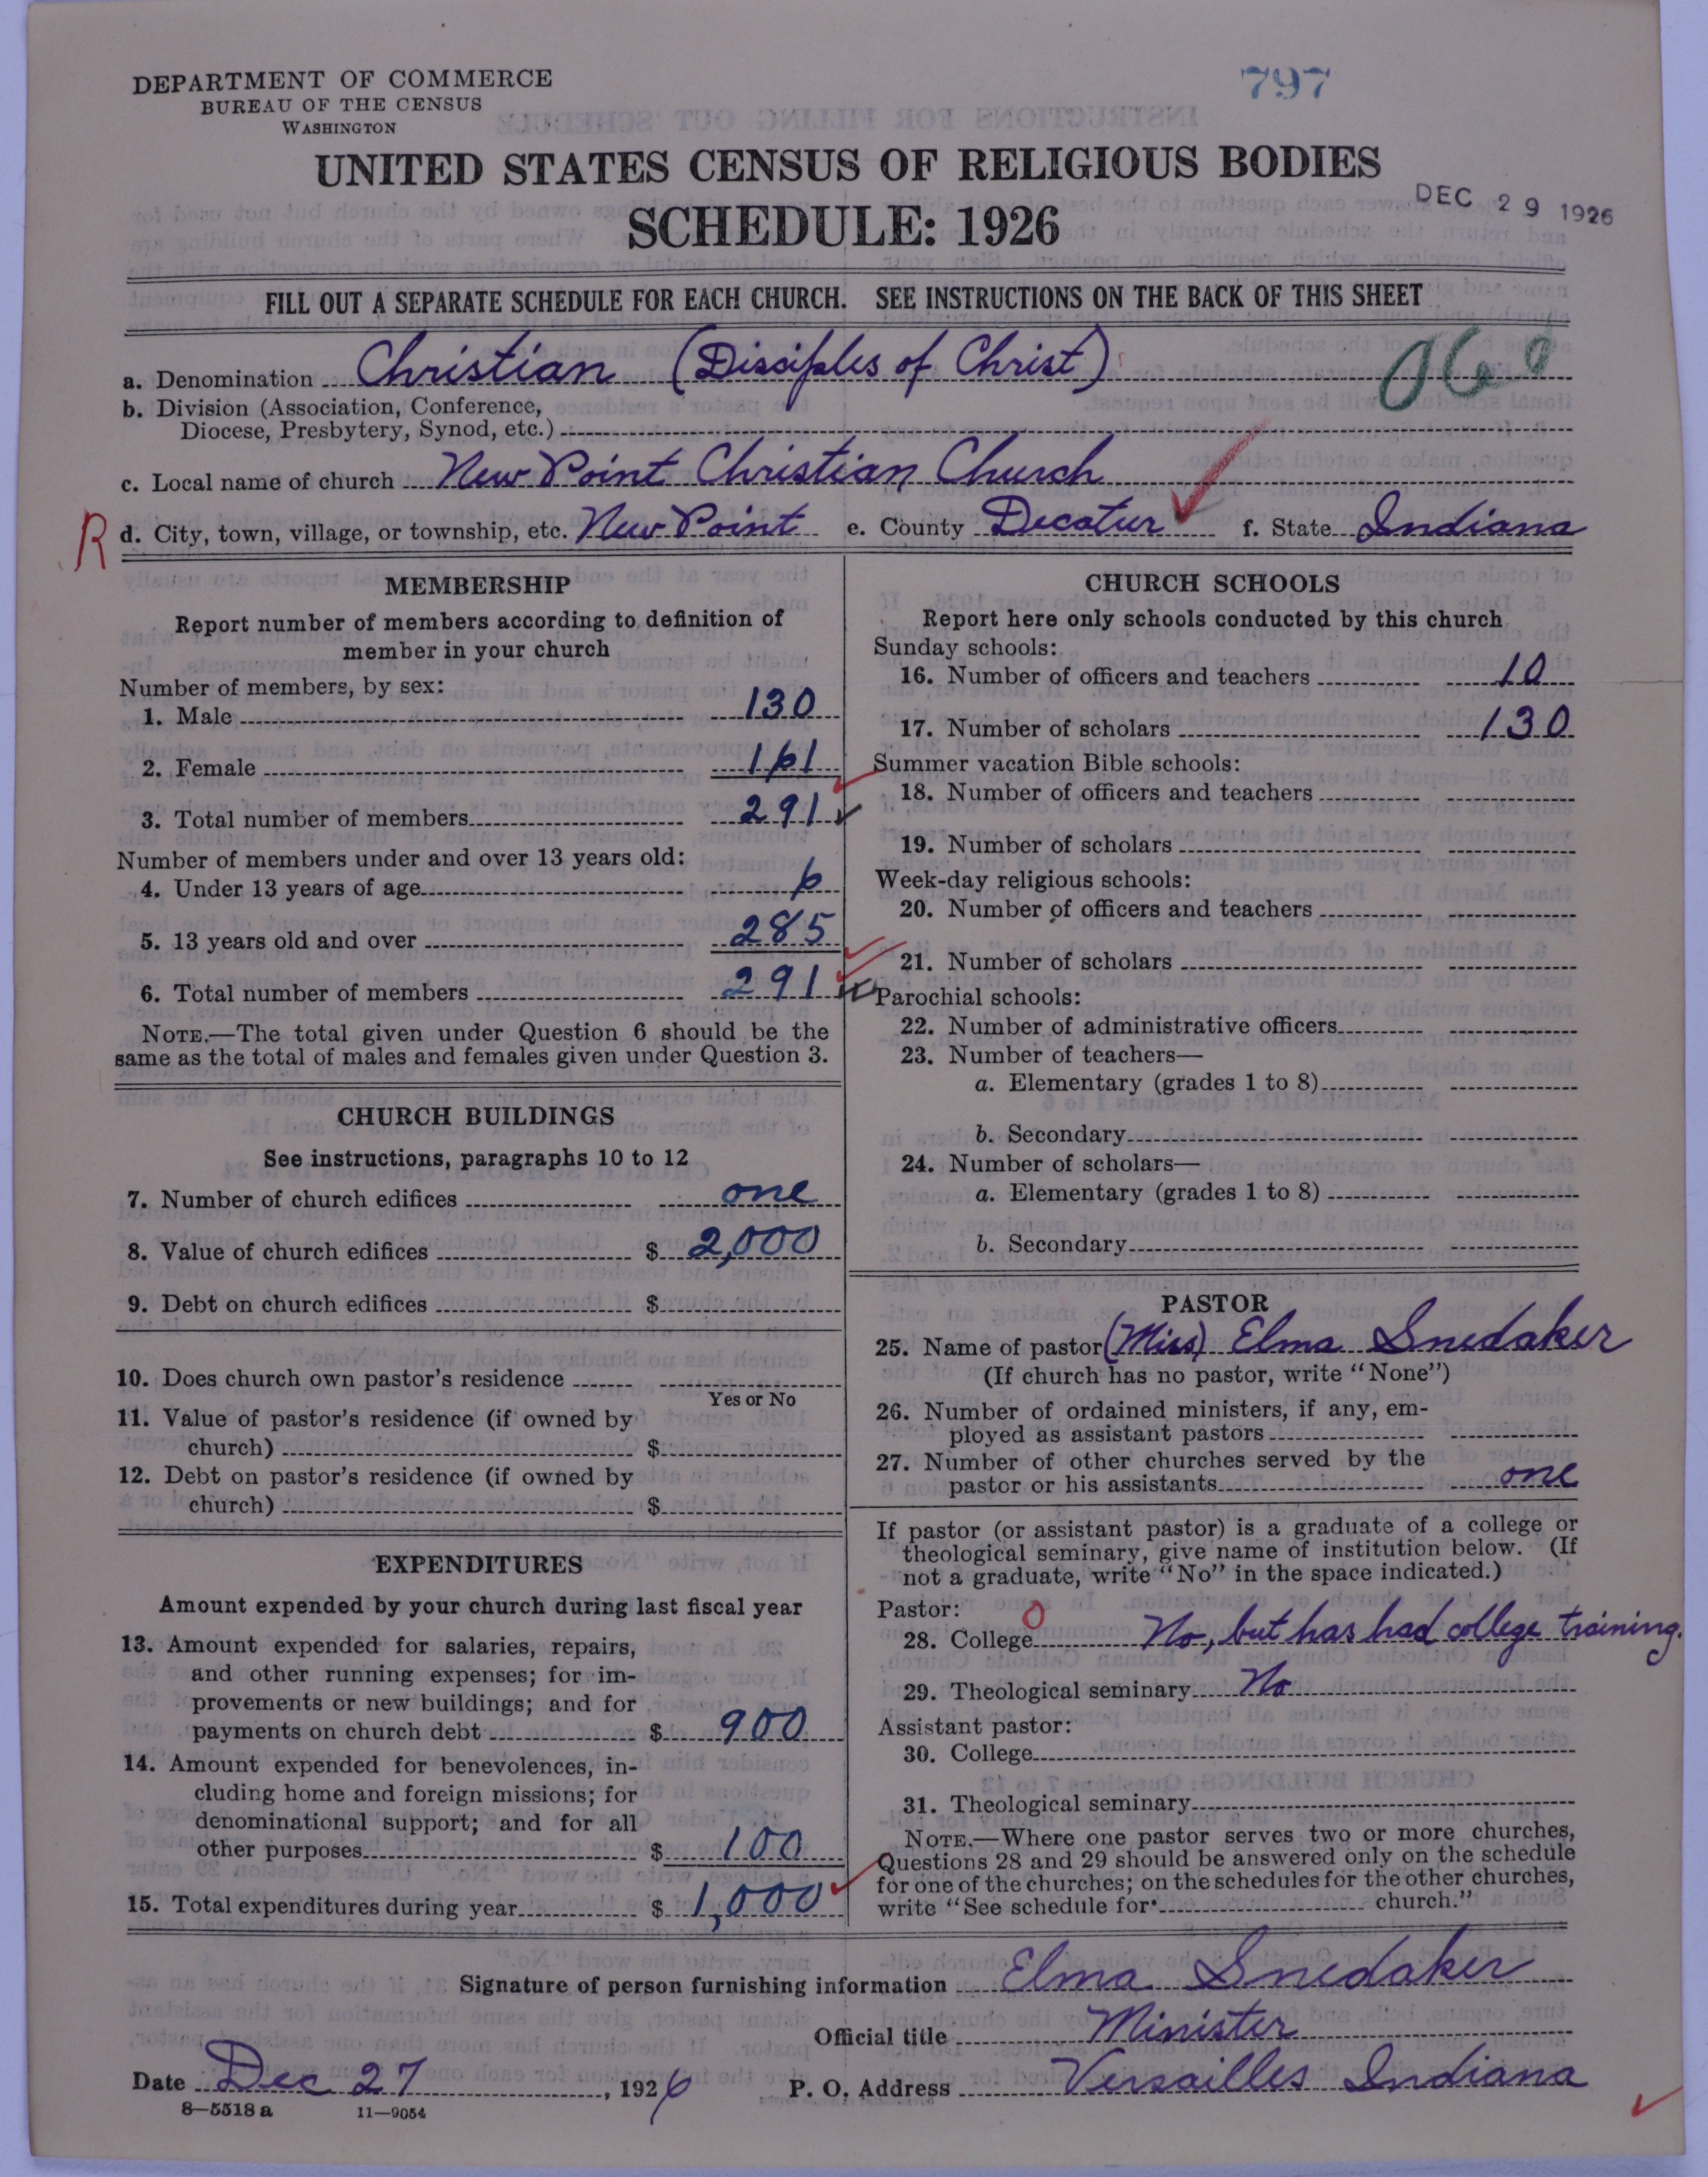 DEPARTMENT OF COMMERCE
BUREAU OF THE CENSUS
WASHINGTON
797
UNITED STATES CENSUS OF RELIGIOUS BODIES
SCHEDULE: 1926
DEC 29 1926
FILL OUT A SEPARATE SCHEDULE FOR EACH CHURCH. SEE INSTRUCTIONS ON THE BACK OF THIS SHEET
a. Denomination Christian (Disciples of Christ)
060
b. Division (Association, Conference,
Diocese, Presbytery, Synod, etc.)
c. Local name of church New Point Christian Church
R d. City, town, village, or township, etc. New Point e. County Decatur f. State Indiana
MEMBERSHIP
Report number of members according to definition of
member in your church
Number of members, by sex:
1. Male 130
2. Female 161
3. Total number of members 291
Number of members under and over 13 years old:
4. Under 13 years of age 6
5. 13 years old and over 285
6. Total number of members 291
NOTE.—The total given under Question 6 should be the
same as the total of males and females given under Question 3.
CHURCH BUILDINGS
See instructions, paragraphs 10 to 12
7. Number of church edifices one
8. Value of church edifices $ 2,000
9. Debt on church edifices $
10. Does church own pastor's residence
Yes or No
11. Value of pastor's residence (if owned by
church) $
12. Debt on pastor's residence (if owned by
church) $
EXPENDITURES
Amount expended by your church during last fiscal year
13. Amount expended for salaries, repairs,
and other running expenses; for im-
provements or new buildings; and for
payments on church debt $ 900
14. Amount expended for benevolences, in-
cluding home and foreign missions; for
denominational support; and for all
other purposes $ 100
15. Total expenditures during year $ 1,000
CHURCH SCHOOLS
Report here only schools conducted by this church
Sunday schools:
16. Number of officers and teachers 10
17. Number of scholars 130
Summer vacation Bible schools:
18. Number of officers and teachers
19. Number of scholars
Week-day religious schools:
20. Number of officers and teachers
21. Number of scholars
Parochial schools:
22. Number of administrative officers
23. Number of teachers—
a. Elementary (grades 1 to 8)
b. Secondary
24. Number of scholars—
a. Elementary (grades 1 to 8)
b. Secondary
PASTOR
25. Name of pastor (Miss) Elma Snedaker
(If church has no pastor, write "None")
26. Number of ordained ministers, if any, em-
ployed as assistant pastors
27. Number of other churches served by the
pastor or his assistants one
If pastor (or assistant pastor) is a graduate of a college or
theological seminary, give name of institution below. (If
not a graduate, write "No" in the space indicated.)
Pastor: 0
28. College No, but has had college training.
29. Theological seminary No
Assistant pastor:
30. College
31. Theological seminary
NOTE.—Where one pastor serves two or more churches,
Questions 28 and 29 should be answered only on the schedule
for one of the churches; on the schedules for the other churches,
write "See schedule for church."
Signature of person furnishing information Elma Snedaker
Official title Minister
Date Dec 27, 1926 P. O. Address Versailles Indiana
8—5518 a 11—9054